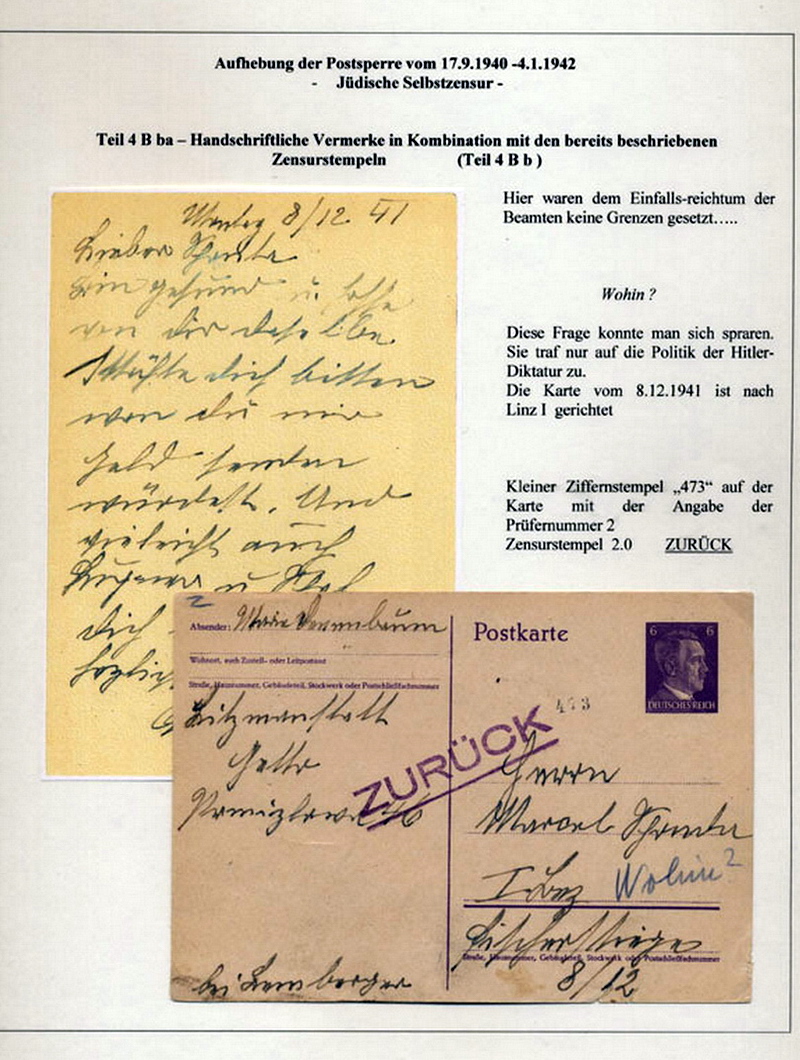 Aufhebung der Postsperre vom 17.9.1940 -4.1.1942
- Jüdische Selbstzensur -
Teil 4 B ba – Handschriftliche Vermerke in Kombination mit den bereits beschriebenen
Zensurstempeln (Teil 4 B b )
Hier waren dem Einfalls-reichtum der
Beamten keine Grenzen gesetzt…..
Wohin ?
Diese Frage konnte man sich spraren.
Sie traf nur auf die Politik der Hitler-
Diktatur zu.
Die Karte vom 8.12.1941 ist nach
Linz I gerichtet
Kleiner Ziffernstempel „473“ auf der
Karte mit der Angabe der
Prüfernummer 2
Zensurstempel 2.0 ZURÜCK
Montag 8/12 41
Lieber
Bin gesund u. hoffe
von dir dasselbe
Möchte dich bitten
wen du mir
Geld senden
würdest. Und
vieleicht auch
u
dich
herzlich
2
Absender: Marie
Wohnort, auch Zustell- oder Leitpostamt
Straße, Hausnummer, Gebäudeteil, Stockwerk oder Postschließfachnummer
Litzmanstatt
Getto
46
bei Lemberger
Postkarte
6 6
DEUTSCHES REICH
473
ZURÜCK
Herrn
Marcel
Wohin?
Straße, Hausnummer, Gebäudeteil, Stockwerk oder Postschließfachnummer
8/12